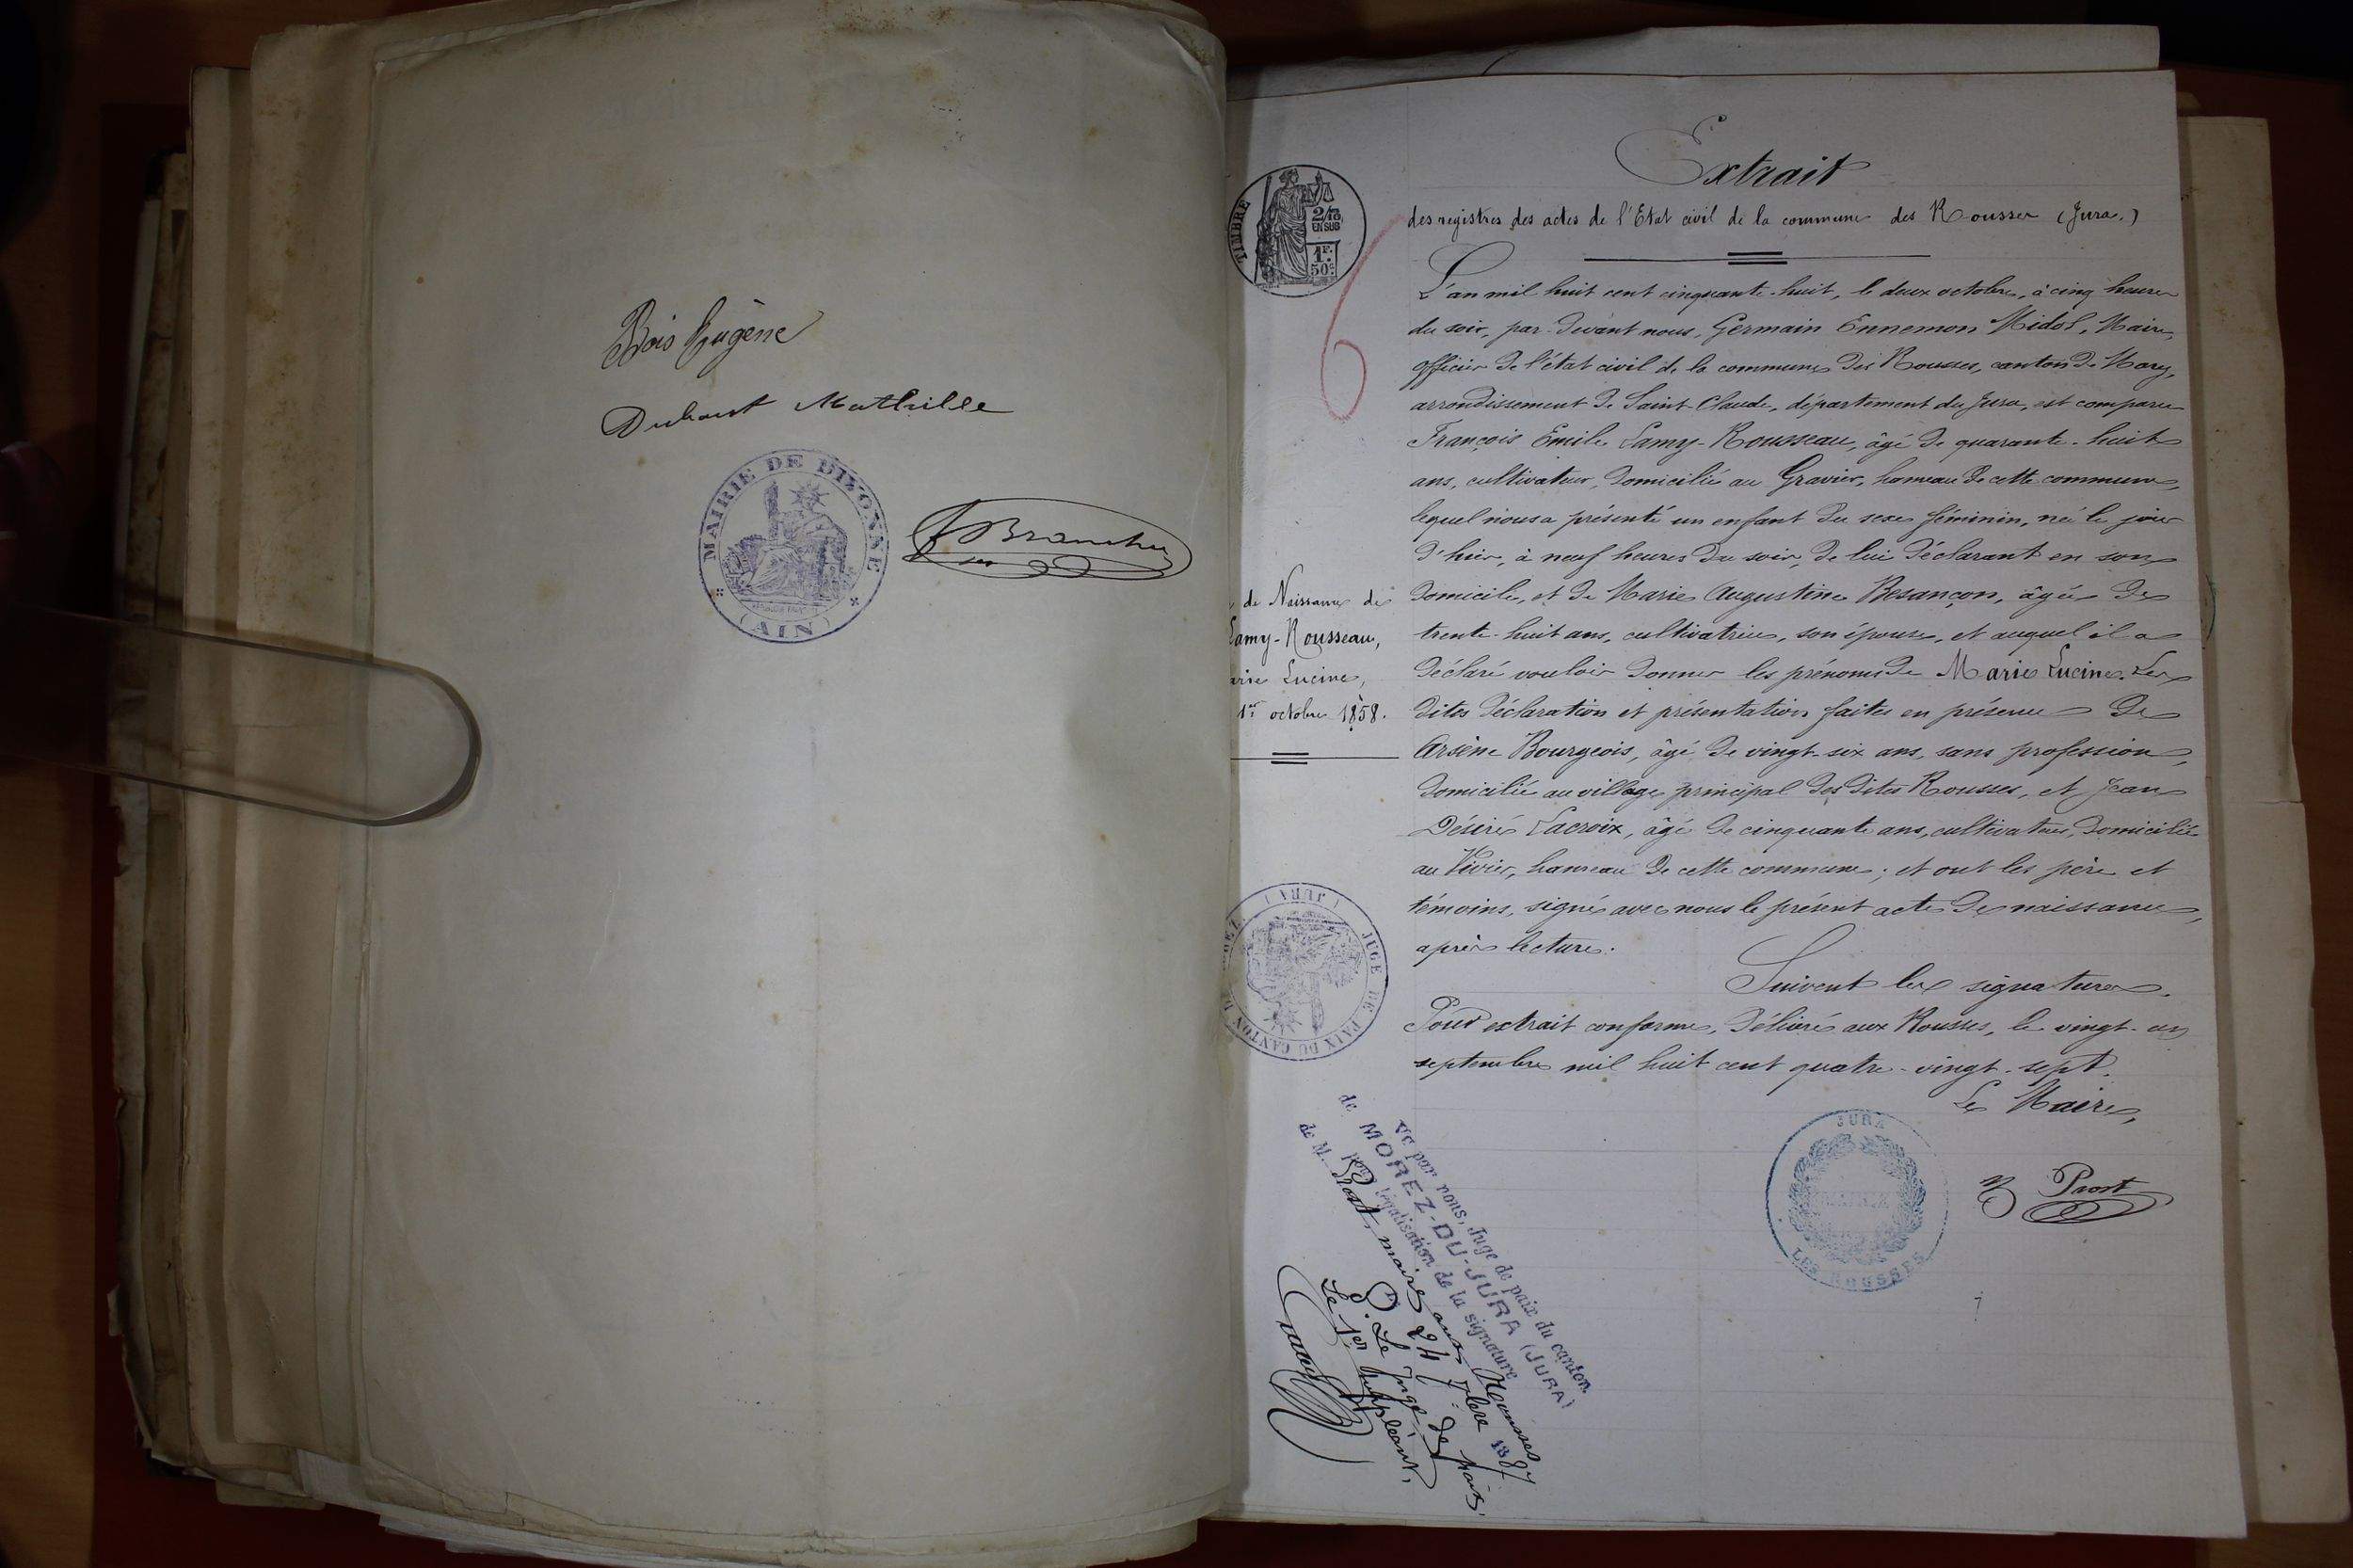 Bois Eugène
Duhaut Mathilde
MAIRIE DE DIVONNE
(AIN)
TIMBRE
2/10
EN SUS
1F.
50c.
Extrait
des registres des actes de l'Etat civil de la commune des Rousses (Jura.)
L'an mil huit cent cinquante-huit, le deux octobre, à cinq heures
du soir, par-devant nous, Germain Ennemon Midol, Maire,
officier de l'état civil de la commune des Rousses, canton de Morez,
arrondissement de Saint-Claude, département du Jura, est comparu
François Emile Lamy-Rousseau, âgé de quarante-huit
ans, cultivateur, domicilié au Gravier, hameau de cette commune,
lequel nous a présenté un enfant du sexe féminin, né le jour
d'hier, à neuf heures du soir, de lui déclarant en son
domicile, et de Marie Augustine Besançon, âgée de
trente-huit ans, cultivatrice, son épouse, et auquel il a
déclaré vouloir donner les prénoms de Marie Lucine. Les
dites déclaration et présentation faites en présence de
Arsène Bourgeois, âgé de vingt-six ans, sans profession,
domicilié au village principal des dites Rousses, et Jean
Désiré Lacroix, âgé de cinquante ans, cultivateur, domicilié
au Vivier, hameau de cette commune; et ont les père et
témoins, signé avec nous le présent acte de naissance,
après lecture.
Suivent les signatures.
Pour extrait conforme, délivré aux Rousses, le vingt-un
septembre mil huit cent quatre-vingt-sept.
Le Maire,
Prost
de Naissance de
Lamy-Rousseau,
arie Lucine,
1er octobre 1858.
JUGE DE PAIX DU CANTON
(JURA)
JURA
LES ROUSSES
Vu par nous, Juge de paix du canton
de MOREZ-DU-JURA (JURA)
pour légalisation de la signature
de M. Prost, maire aux Rousses
24 7bre 1887
P. Le Juge de paix,
Le 1er Suppléant,